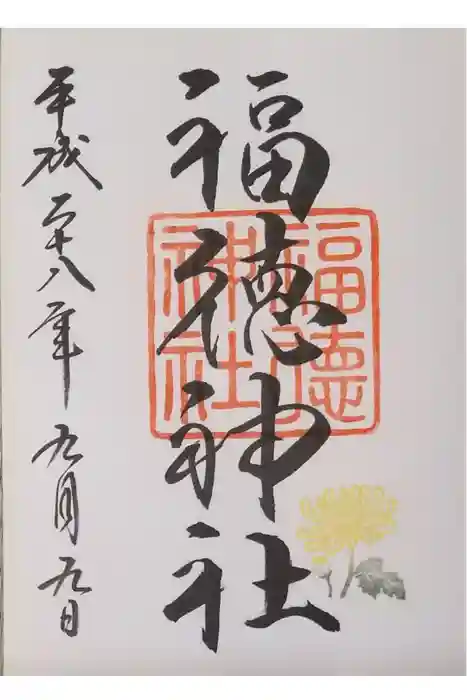 福徳神社
福德
神社
平成二十八年九月九日